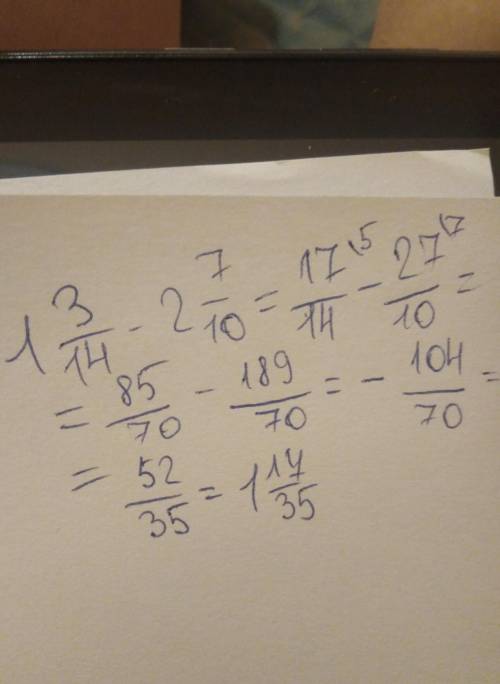 1 3/14 - 2 7/10 = 17\5/14 - 27\7/10 =
= 85/70 - 189/70 = - 104/70 =
= 52/35 = 1 17/35